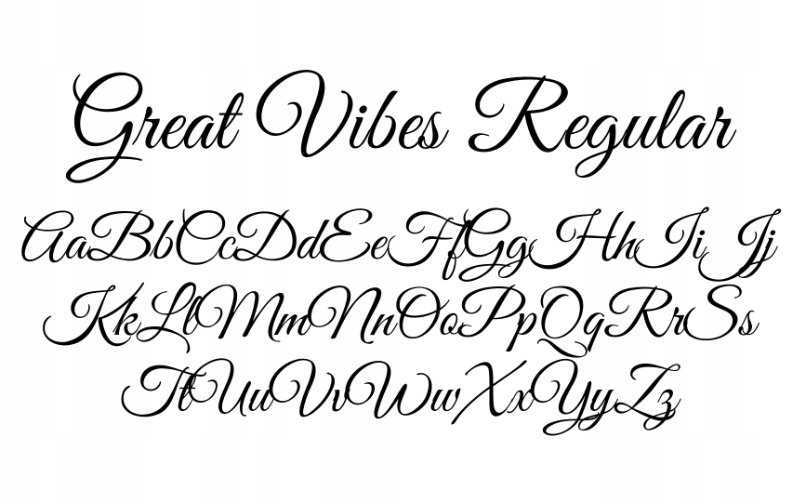 Great Vibes Regular
AaBbCcDdEeFfGgHhIiJj
KkLlMmNnOoPpQqRrSs
TtUuVvWwXxYyZz